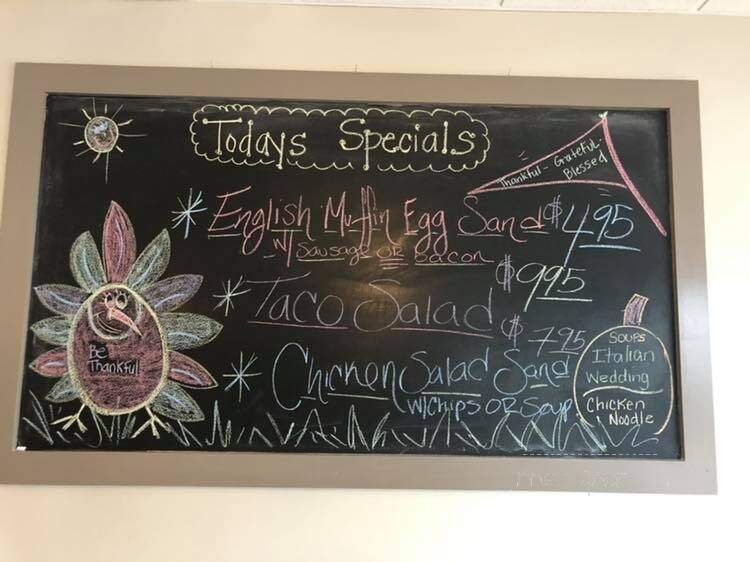 Todays Specials
Thankful - Grateful -
Blessed
English Muffin Egg Sand $4.95
w/ Sausage or bacon
Taco Salad $9.95
Chicken Salad Sand $7.95
(w/chips or soup)
Soups
Italian
Wedding
Chicken
Noodle
Be
Thankful